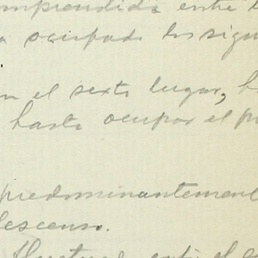 comprendida entre
ocupado los sigu
en el sexto lugar, h
hasta ocupar el p
predominantement
descenso.
fluctua entre el